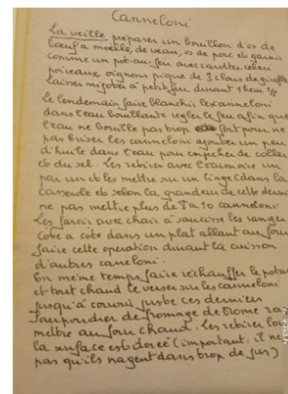 Canneloni
La veille préparer un bouillon d'os de
bœuf a moëlle, de veau, os de porc et garni
comme un pot-au-feu avec carottes, céleri
poireaux, oignons piqué de 3 clous de girofle
laisser mijoter a petit feu durant 1 heure 1/2
Le lendemain faire blanchir les canneloni
dans l'eau bouillante regler le feu afin que
l'eau ne bouille pas trop fort pour ne
pas briser les canneloni ajouter un peu
d'huile dans l'eau pour empecher de coller
et du sel. Les retirer avec l'écumoire un
par un et les mettre sur un linge (dans la
casserole et selon la grandeur de cette derni
ne pas mettre plus de 8 a 10 canneloni
Les farcir avec chair a saucisse les ranger
cote a cote dans un plat allant au four
faire cette opération durant la cuisson
d'autres caneloni.
En meme temps faire réchauffer le potage
et tout chaud le verser sur les canneloni
jusqu'a couvrir juste ces derniers
Saupoudrer de fromage de Brome ra
mettre au four chaud. Les retirer lor
la surface est dorée (important, il ne
pas qu'ils nagent dans trop de jus)